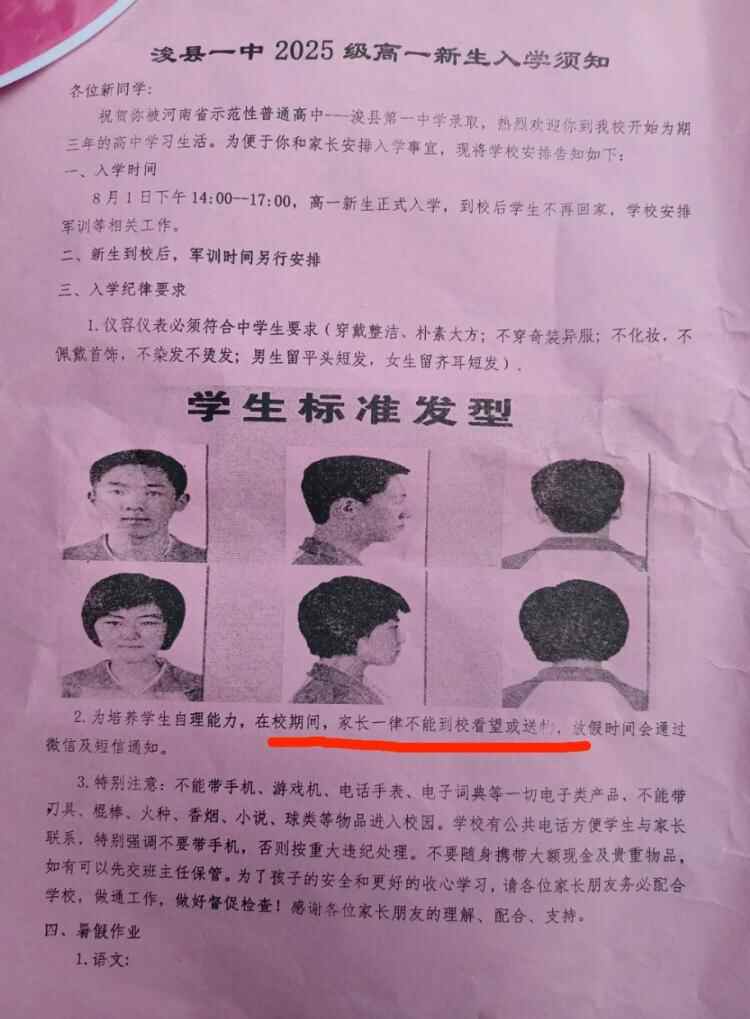 浚县一中 2025 级高一新生入学须知
各位新同学：
祝贺你被河南省示范性普通高中---浚县第一中学录取，热烈欢迎你到我校开始为期
三年的高中学习生活。为便于你和家长安排入学事宜，现将学校安排告知如下：
一、入学时间
8 月 1 日下午 14:00--17:00，高一新生正式入学，到校后学生不再回家，学校安排
军训等相关工作。
二、新生到校后，军训时间另行安排
三、入学纪律要求
1.仪容仪表必须符合中学生要求（穿戴整洁、朴素大方；不穿奇装异服；不化妆，不
佩戴首饰，不染发不烫发；男生留平头短发，女生留齐耳短发）.
学生标准发型
2.为培养学生自理能力，在校期间，家长一律不能到校看望或送物，放假时间会通过
微信及短信通知。
3.特别注意：不能带手机、游戏机、电话手表、电子词典等一切电子类产品，不能带
刃具、棍棒、火种、香烟、小说、球类等物品进入校园。学校有公共电话方便学生与家长
联系，特别强调不要带手机，否则按重大违纪处理。不要随身携带大额现金及贵重物品，
如有可以先交班主任保管。为了孩子的安全和更好的收心学习，请各位家长朋友务必配合
学校，做通工作，做好督促检查！感谢各位家长朋友的理解、配合、支持。
四、暑假作业
1.语文：